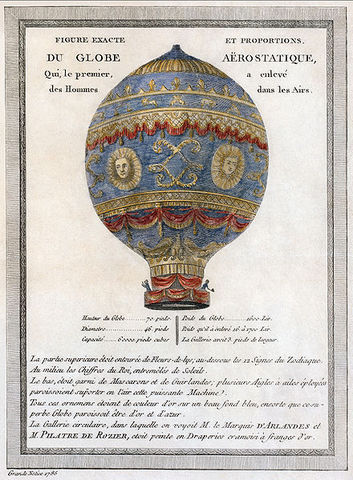 FIGURE EXACTE ET PROPORTIONS.
DU GLOBE AËROSTATIQUE,
Qui, le premier, a enlevé
des Hommes dans les Airs.
Hauteur du Globe............70. pieds
Diametre............46. pieds
Capacité............60000 pieds cubes
Poids du Globe............1600. Liv.
Poids qu'il a enlevé 16. à 1700. Liv.
La Gallerie avoit 3. pieds de largeur
La partie superieure étoit entourée de Fleurs-de-lys, au-dessous les 12 Signes du Zodiaque.
Au milieu les Chiffres du Roi, entremêlés de Soleils.
Le bas, étoit garni de Mascarons et de Guirlandes; plusieurs Aigles a ailes éployées
paroissoient suporter en l'air cette puissante Machine.
Tous ces ornemens étoient de couleur d'or sur un beau fond bleu, ensorte que ce su-
perbe Globe paroissoit être d'or et d'azur.
La Gallerie circulaire, dans laquelle on voyoit M. le Marquis D'ARLANDES et
M. PILATRE DE ROZIER, étoit peinte en Draperies cramoisi à franges d'or.
1786